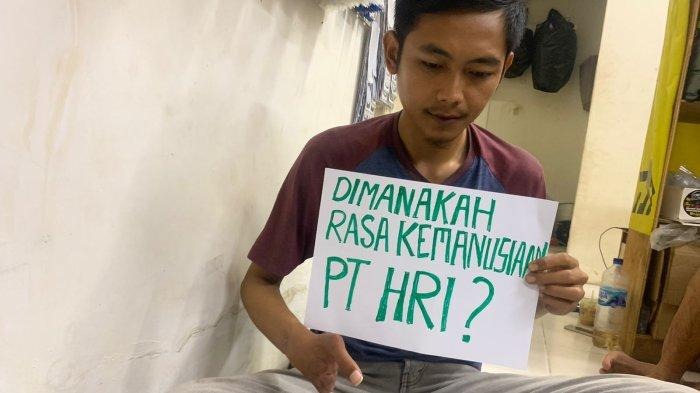 DIMANAKAH
RASA KEMANUSIAAN
PT HRI?